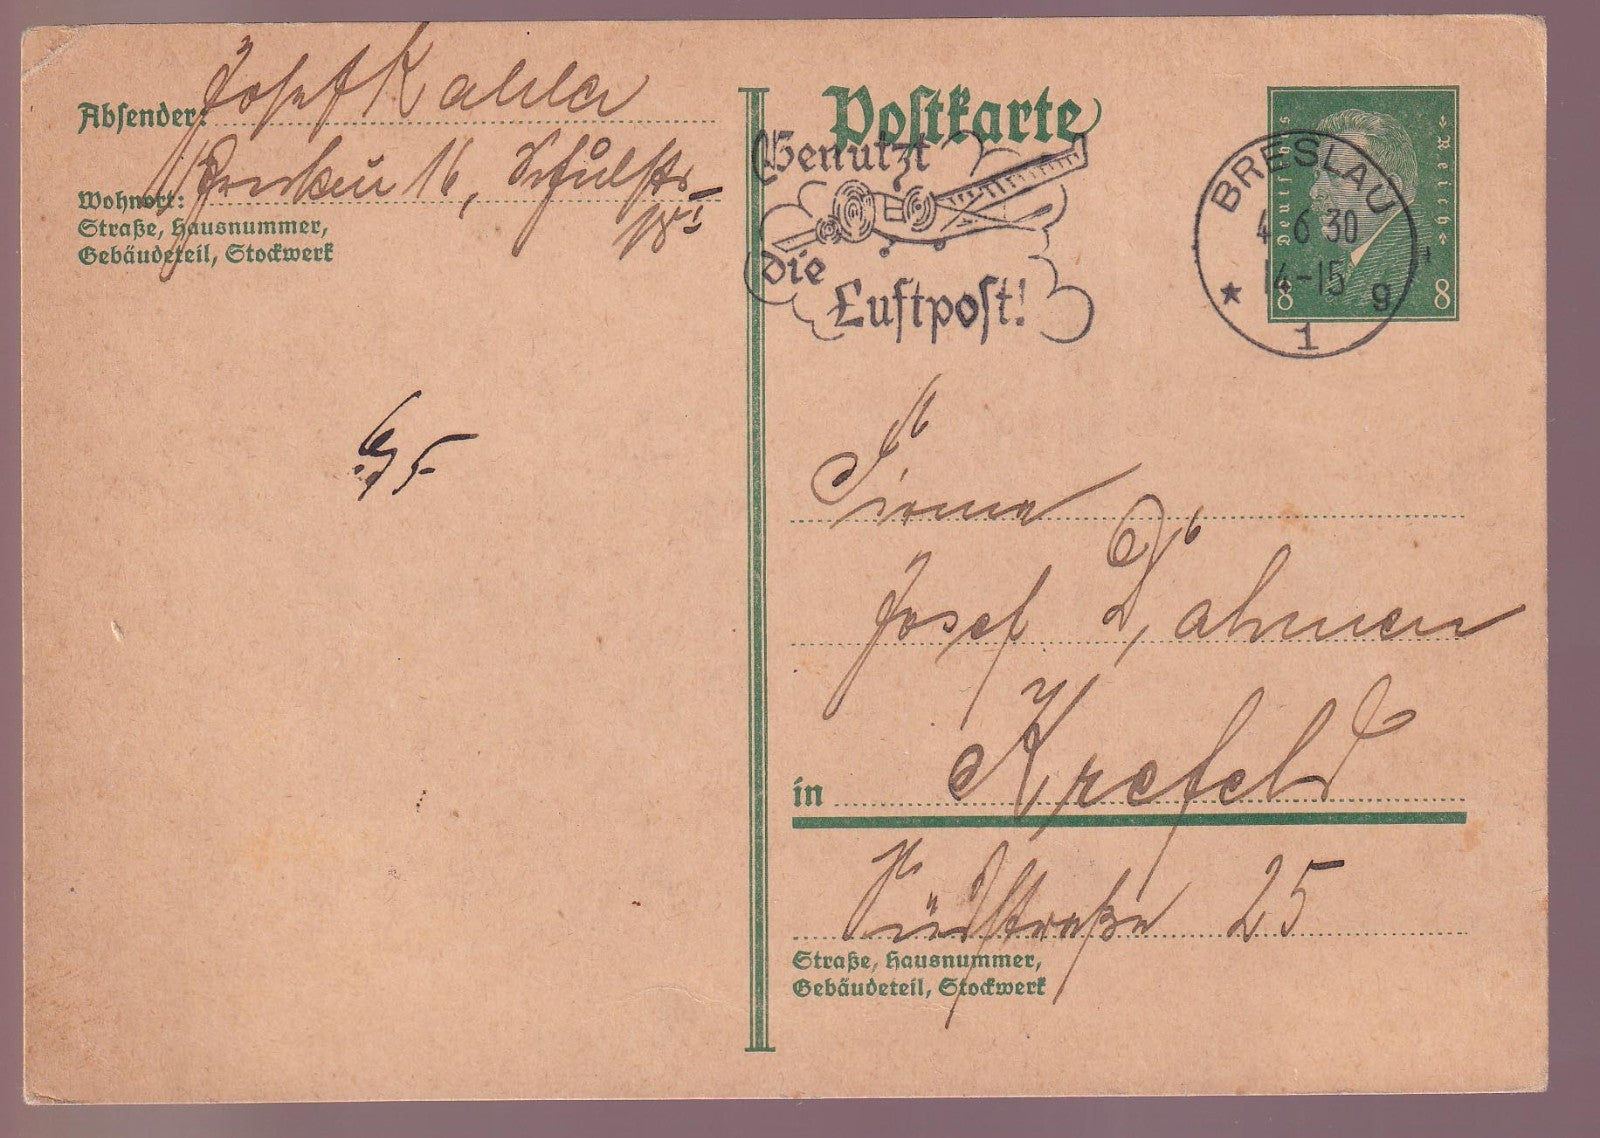 Absender: Josef Kahler
Breslau 16, Schulstr.
Wohnort:
Straße, Hausnummer,
Gebäudeteil, Stockwerk
Postkarte
Benutzt
die
Luftpost!
Deutsches Reich
8 8
BRESLAU
4 6 30
14-15
* g
1
Firma
Josef Dahmen
in Krefeld
Südstraße 25
Straße, Hausnummer,
Gebäudeteil, Stockwerk